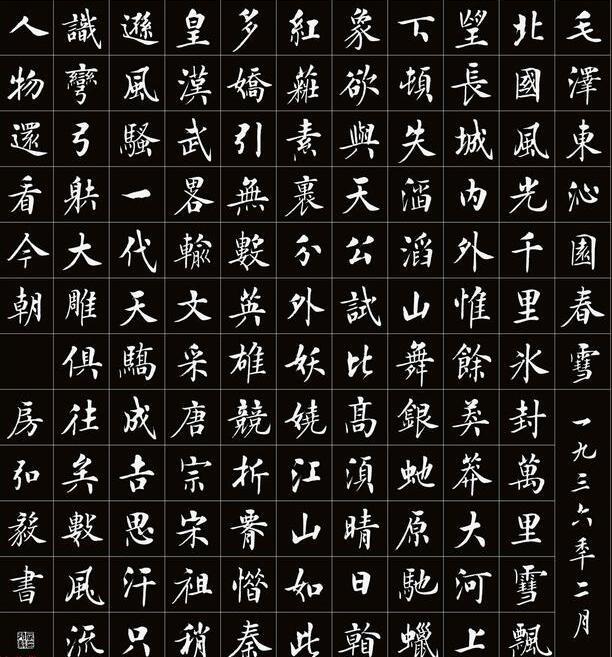 毛澤東沁園春雪
一九三六年二月
北國風光千里氷封萬里雪飄
望長城内外惟餘莽莽大河上
下頓失滔滔山舞銀虵原馳蠟
象欲與天公試比高須晴日看
紅素裹分外妖嬈江山如此
多嬌引無數英雄競折腰惜秦
皇漢武畧輸文采唐宗宋祖稍
遜風騷一代天驕成吉思汗只
識彎弓射大雕俱往矣數風流
人物還看今朝
房弘毅書